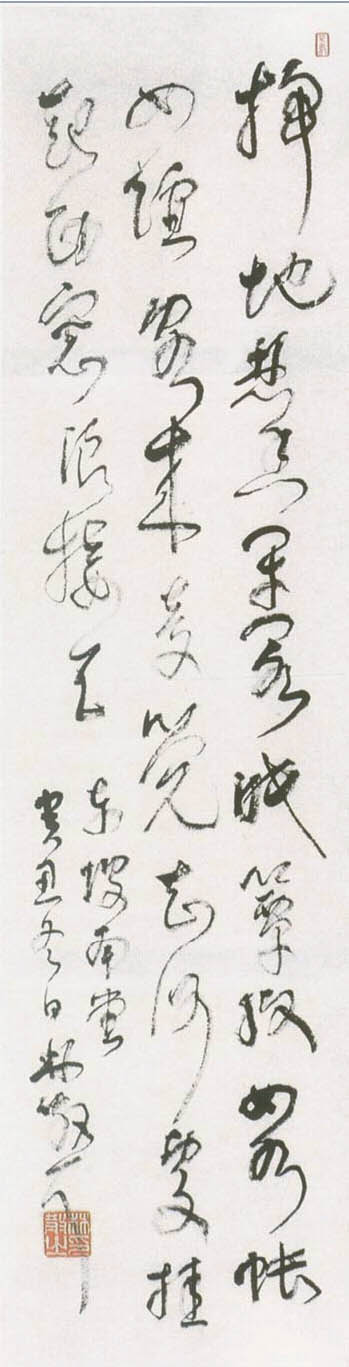 掃地焚香閉閣眠簟紋如水帳
如煙客来夢覺知何處挂
起西窗浪接天
東坡南堂
癸丑冬日林散耳